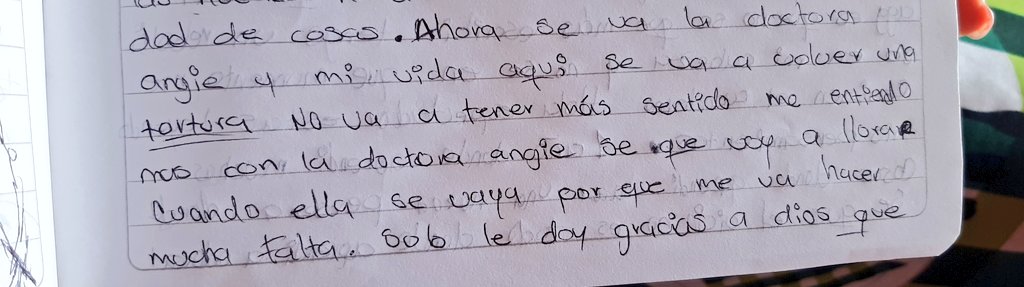 dad de cosas. Ahora se va la doctora
angie y mi vida aqui se va a volver una
tortura No va a tener más sentido me entiendo
mas con la doctora angie se que voy a llorar
Cuando ella se vaya por que me va hacer
mucha falta. Solo le doy gracias a dios que